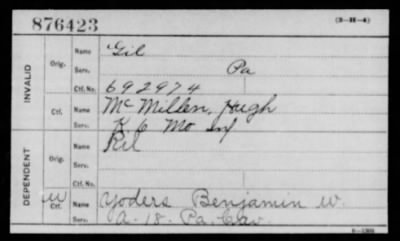 876423
(3-H-4)
INVALID
Orig.
Name Gil
Serv. Pa
Ctf. No. 692974
Ctf.
Name McMillen, Hugh
Serv. K. 6 Mo Inf
DEPENDENT
Orig.
Name Rel
Serv.
Ctf. No.
W Ctf.
Name Yoders Benjamin W.
Serv. A. 18. Pa. Cav.